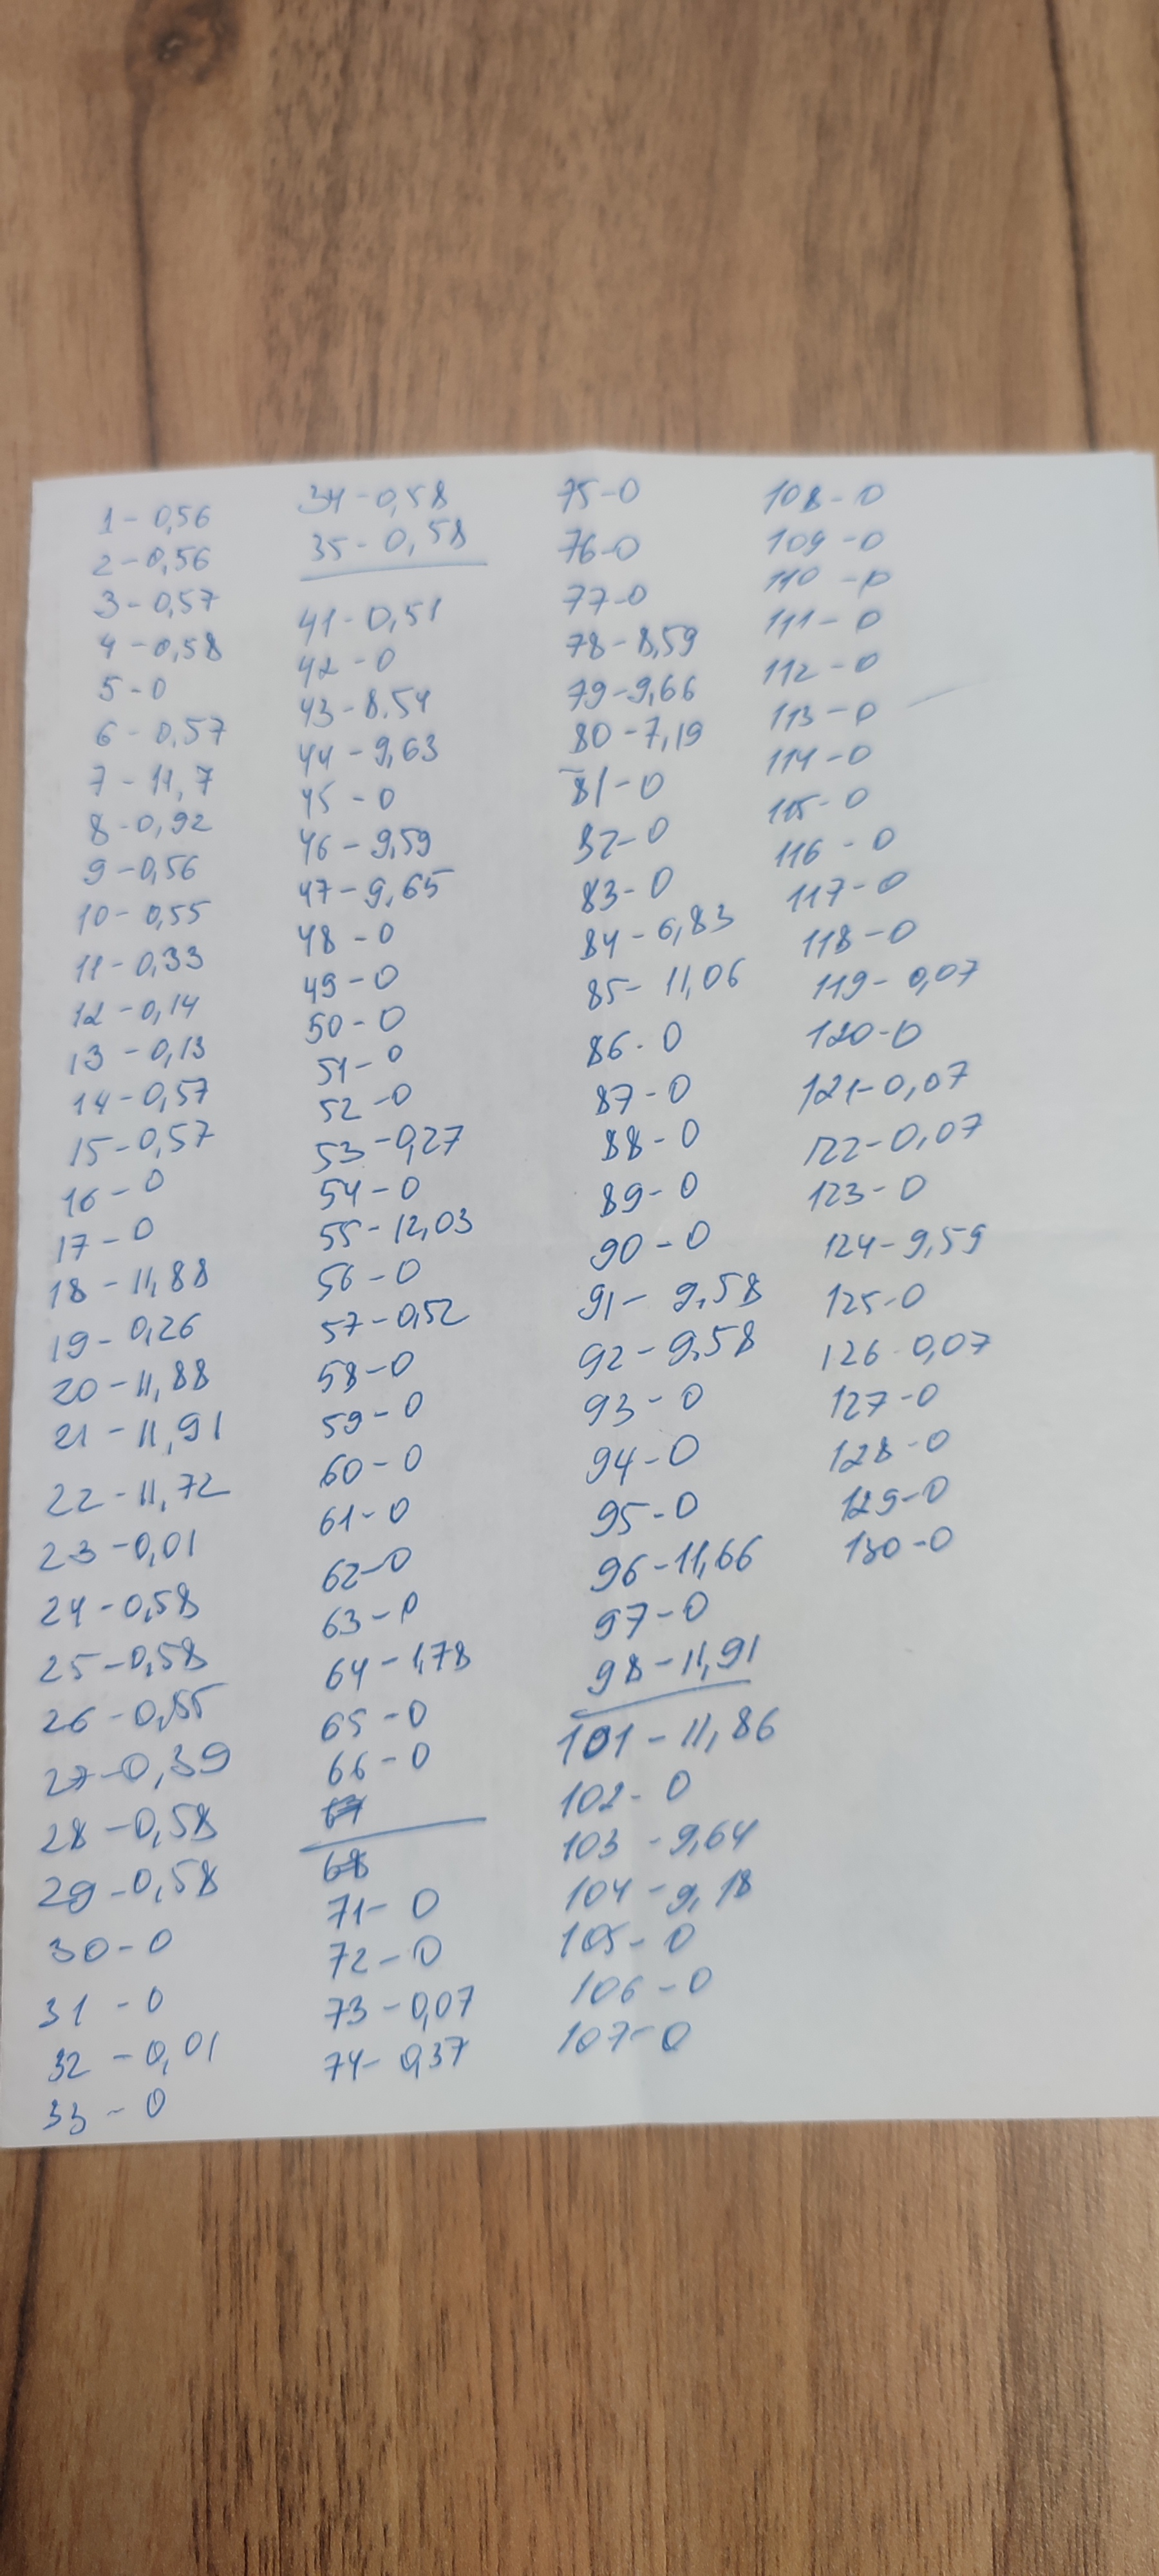 1-0,56
2-0,56
3-0,57
4-0,58
5-0
6-0,57
7-11,7
8-0,92
9-0,56
10-0,55
11-0,33
12-0,14
13-0,13
14-0,57
15-0,57
16-0
17-0
18-11,88
19-0,26
20-11,88
21-11,91
22-11,72
23-0,01
24-0,58
25-0,58
26-0,55
27-0,39
28-0,58
29-0,58
30-0
31-0
32-0,01
33-0
34-0,58
35-0,58
41-0,51
42-0
43-8.54
44-9,63
45-0
46-9,59
47-9,65
48-0
49-0
50-0
51-0
52-0
53-0,27
54-0
55-12,03
56-0
57-0,52
58-0
59-0
60-0
61-0
62-0
63-0
64-1,78
65-0
66-0
67
68
71-0
72-0
73-0,07
74-0,37
75-0
76-0
77-0
78-8,59
79-9,66
80-7,19
81-0
82-0
83-0
84-6,83
85-11,06
86-0
87-0
88-0
89-0
90-0
91-9,58
92-9,58
93-0
94-0
95-0
96-11,66
97-0
98-11,91
101-11,86
102-0
103-9,64
104-9,18
105-0
106-0
107-0
108-0
109-0
110-0
111-0
112-0
113-0
114-0
115-0
116-0
117-0
118-0
119-0,07
120-0
121-0,07
122-0,07
123-0
124-9,59
125-0
126-0,07
127-0
128-0
129-0
130-0